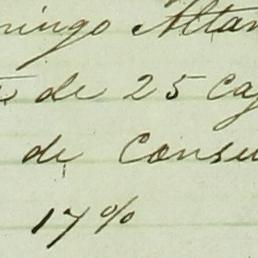 ningo Altam
de 25 caj
de Consu
17%